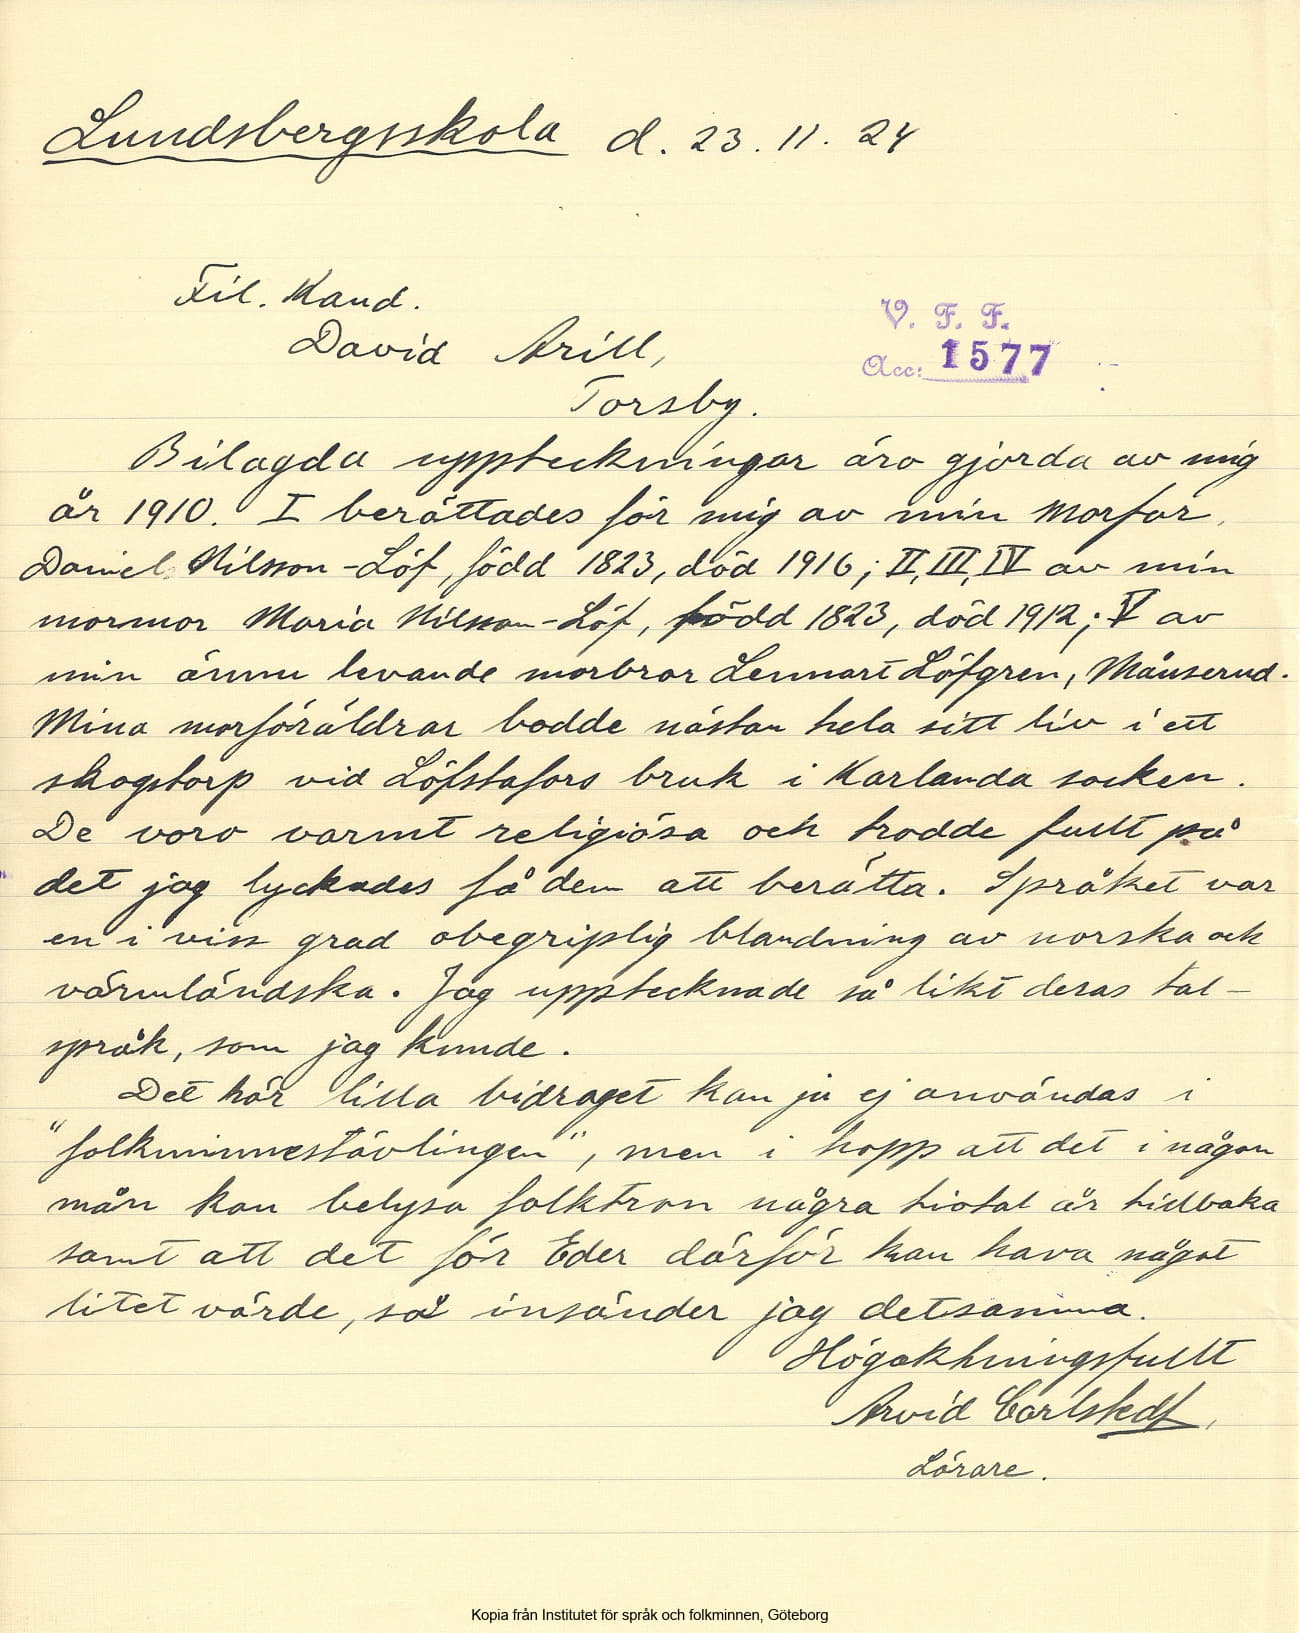 Lundsbergsskola d. 23. 11. 24
Fil. Kand.
David Arill,
Torsby.
V. F. F.
Acc: 1577
Bilagda uppteckningar äro gjorda av mig
år 1910. I berättades för mig av min morfar,
Daniel Nilsson-Löf, född 1823, död 1916; II, III, IV av min
mormor Maria Nilsson-Löf, född 1823, död 1912; V av
min ännu levande morbror Lennart Löfgren, Månserud.
Mina morföräldrar bodde nästan hela sitt liv i ett
skogstorp vid Löfstafors bruk i Karlanda socken.
De voro varmt religiösa och trodde fullt på
det jag lyckades få dem att berätta. Språket var
en i viss grad obegriplig blandning av norska och
värmländska. Jag upptecknade så likt deras tal-
språk, som jag kunde.
Det här lilla bidraget kan ju ej användas i
"folkminnestävlingen", men i hopp att det i någon
mån kan belysa folktron några tiotal år tillbaka
samt att det för Eder därför kan hava något
litet värde, så insänder jag detsamma.
Högaktningsfullt
Arvid Carlstedt,
Lärare.
Kopia från Institutet för språk och folkminnen, Göteborg